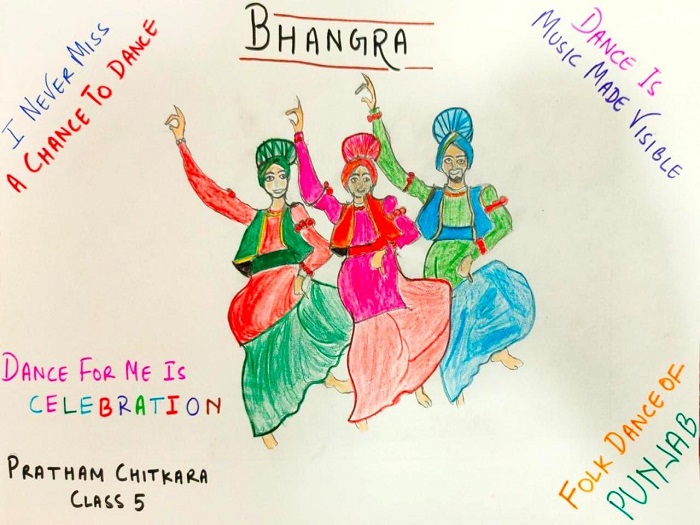 BHANGRA
I NEVER MISS
A CHANCE TO DANCE
DANCE IS
MUSIC MADE VISIBLE
DANCE FOR ME IS
CELEBRATION
PRATHAM CHITKARA
CLASS 5
FOLK DANCE OF
PUNJAB